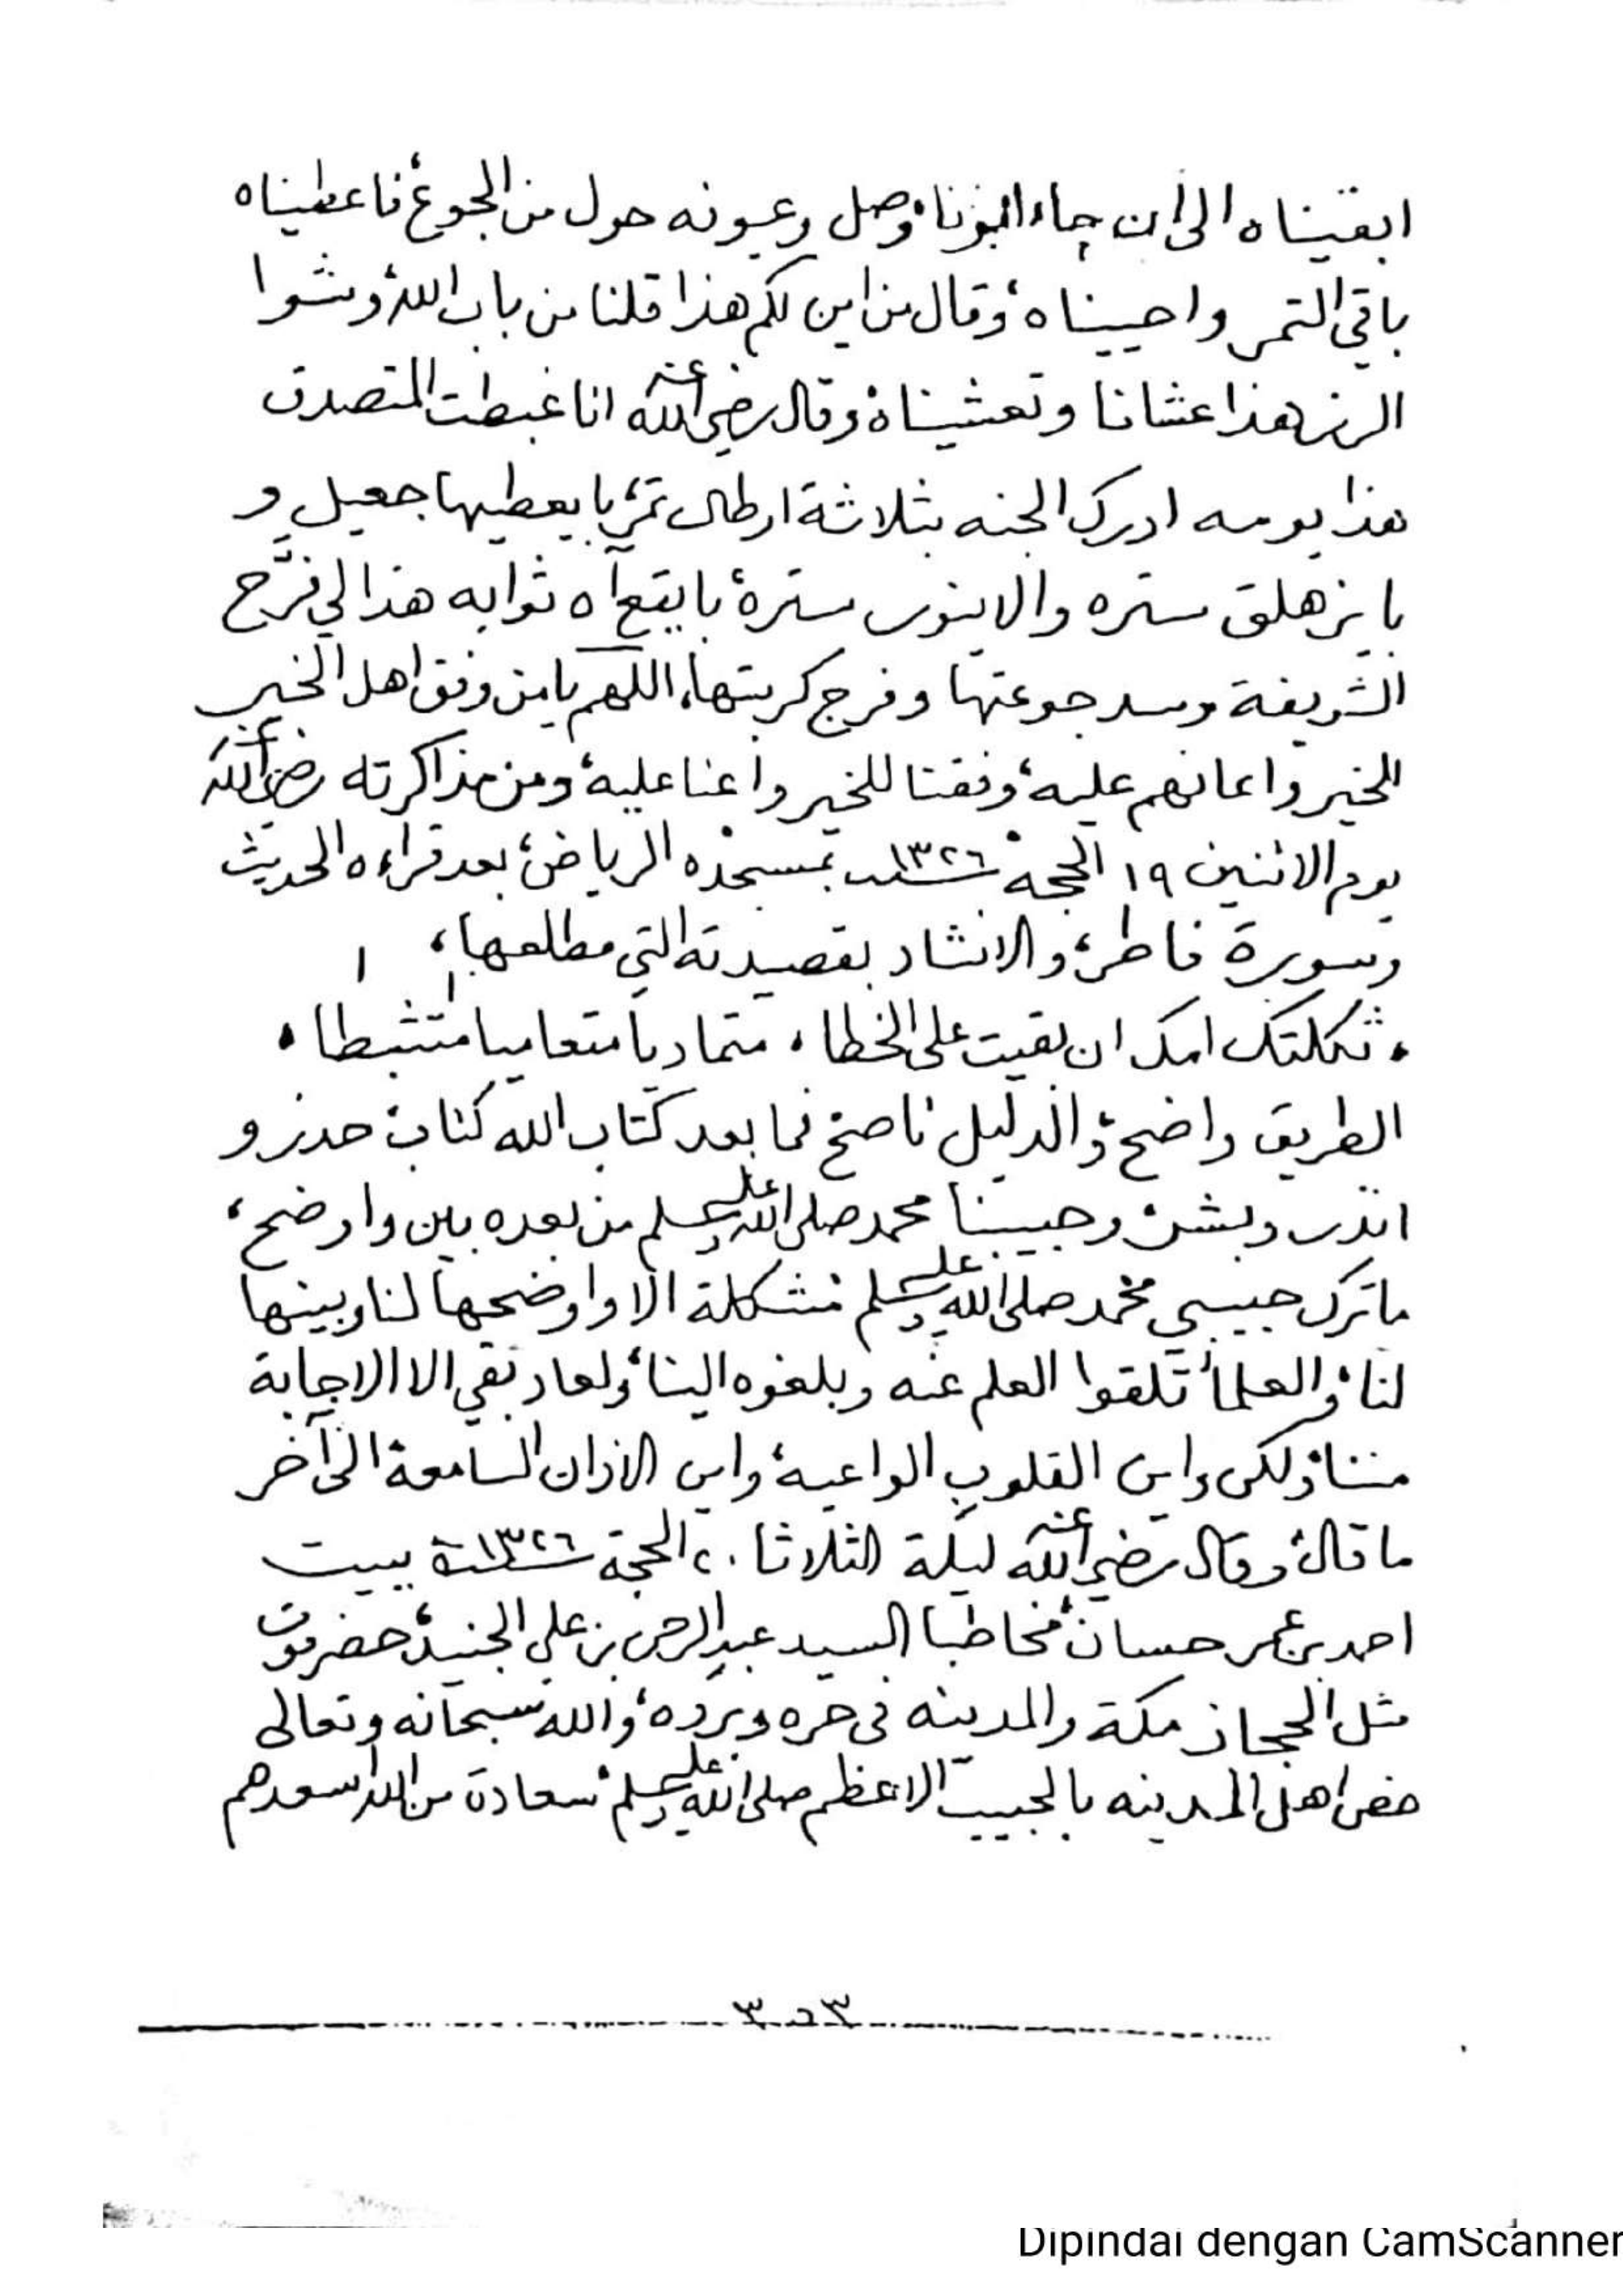 ابقيناه الى ان جاء ابونا، وصل وعيونه حول من الجوع، فاعطيناه
باقي التمر واحييناه، وقال من اين لكم هذا قلنا من باب الله، وشوا
الرز هذا عشانا وتعشيناه، وقال رضي الله عنه انا غبطت المتصدق
هذا يومه ادرك الجنه بثلاثة ارطال تمر، با يعطيها جعيل و
با يزهلق ستره والا ينوس ستره، با يقع اه ثوابه هذا لي فرّج
الشريفة وسد جوعتها وفرج كربتها، اللهم يا من وفق اهل الخير
للخير واعانهم عليه، وفقنا للخير واعنا عليه، ومن مذاكرته رضي الله عنه
يوم الاثنين ١٩ الحجة سنة ١٣٢٦ بمسجده الرياض، بعد قراءه الحديث
وسورة فاطر، والانشاد بقصيدته التي مطلعها،
، ثكلتك امك ان بقيت على الخطا ، متماديا متعاميا متثبطا ،
الطريق واضح، والدليل ناصح فما بعد كتاب الله كتاب، حدز و
انذر وبشر، وحبيبنا محمد صلى الله عليه وسلم من بعده بين واوضح،
ما ترك حبيبي محمد صلى الله عليه وسلم مشكلة الا واوضحها لنا وبينها
لنا، والعلما، تلقوا العلم عنه وبلغوه الينا، ولعاد بقي الا الاجابة
منا، ولكن واين القلوب الواعيه، واين الاذان السامعة، الى آخر
ما قال، وقال رضي الله عنه ليلة الثلاثا ٢٠ الحجة سنة ١٣٢٦ ببيت
احمد بن عمر حسان، مخاطبا السيد عبدالرحمن بن علي الجنيد، حضرموت
مثل الحجاز مكة والمدينه في حره وبرده، والله سبحانه وتعالى
خص اهل المدينه بالحبيب الاعظم صلى الله عليه وسلم، سعادة من الله اسعدهم
٣٥٣
Dipindai dengan CamScanner